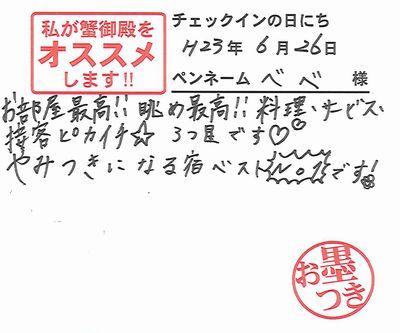 私が蟹御殿を
オススメ
します!!
チェックインの日にち
H23年 6月26日
ペンネーム べべ 様
お部屋最高!! 眺め最高!! 料理、サービス、
接客ピカイチ☆ 3つ星です♡♡
やみつきになる宿ベストNo1です!
お墨つき